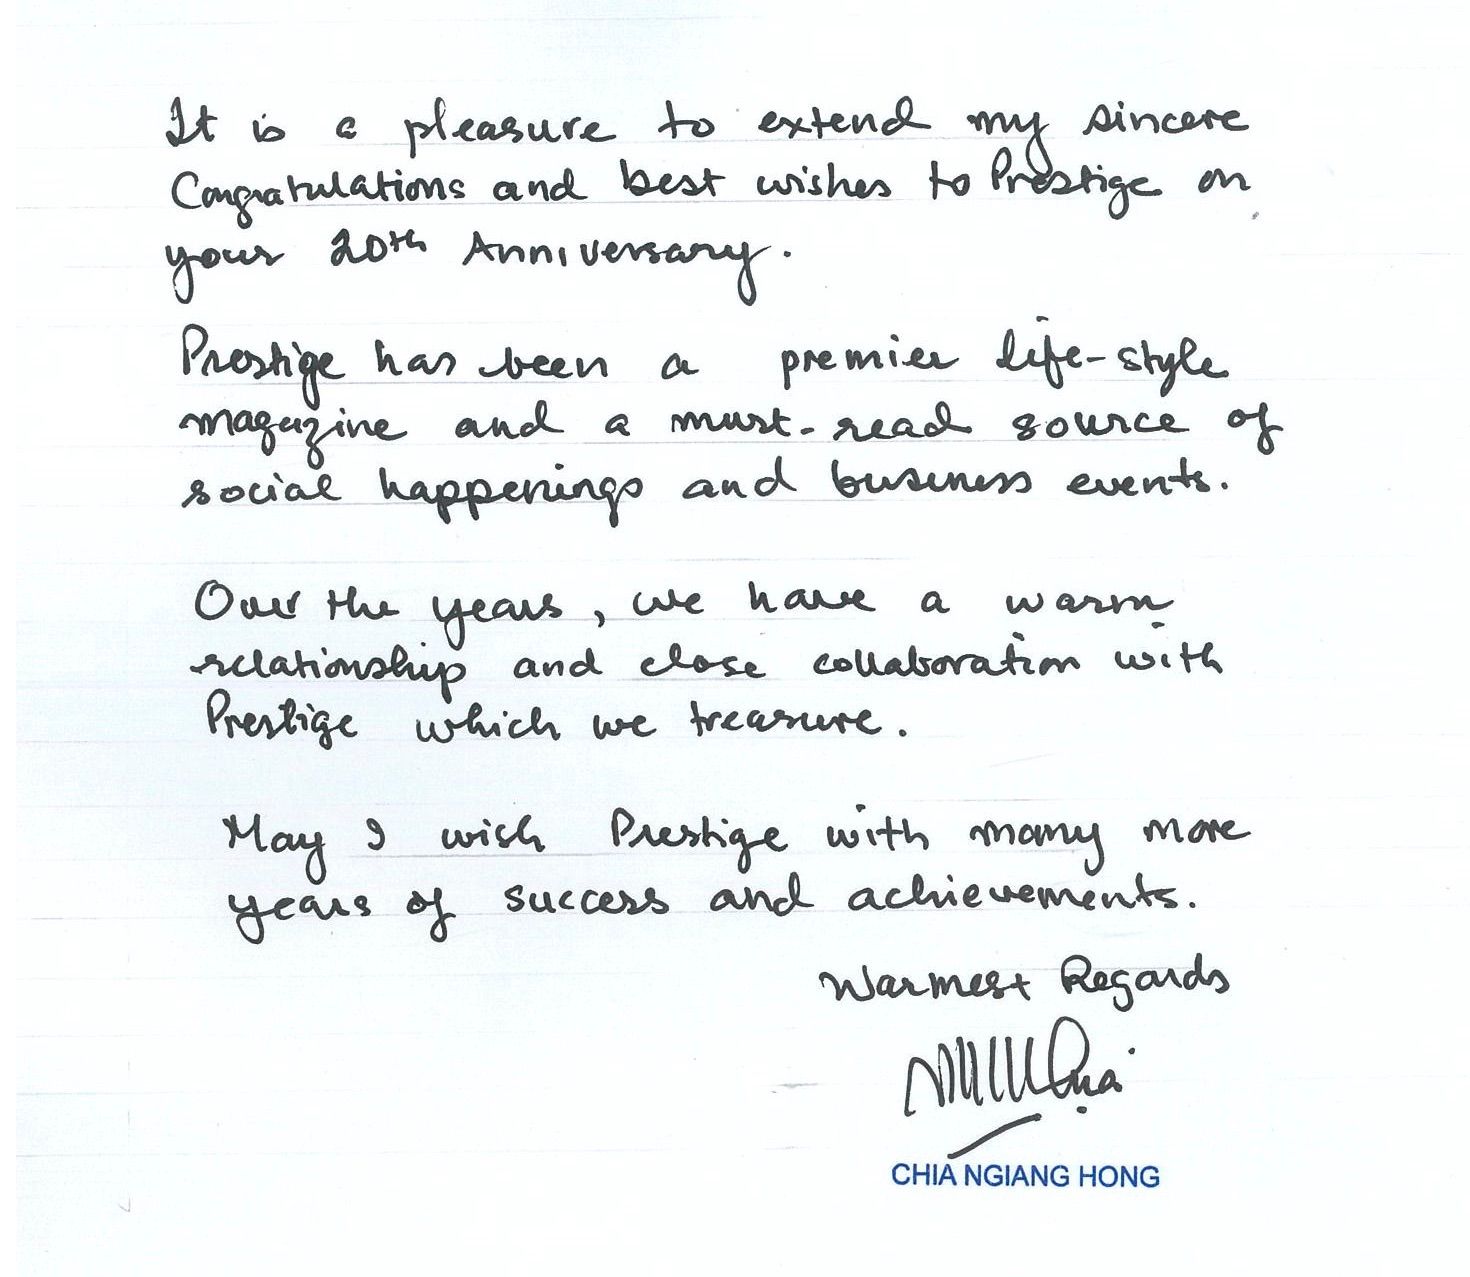 It is a pleasure to extend my sincere
Congratulations and best wishes to Prestige on
your 20th Anniversary.
Prestige has been a premier life-style
magazine and a must-read source of
social happenings and business events.
Over the years, we have a warm
relationship and close collaboration with
Prestige which we treasure.
May I wish Prestige with many more
years of success and achievements.
Warmest Regards
CHIA NGIANG HONG